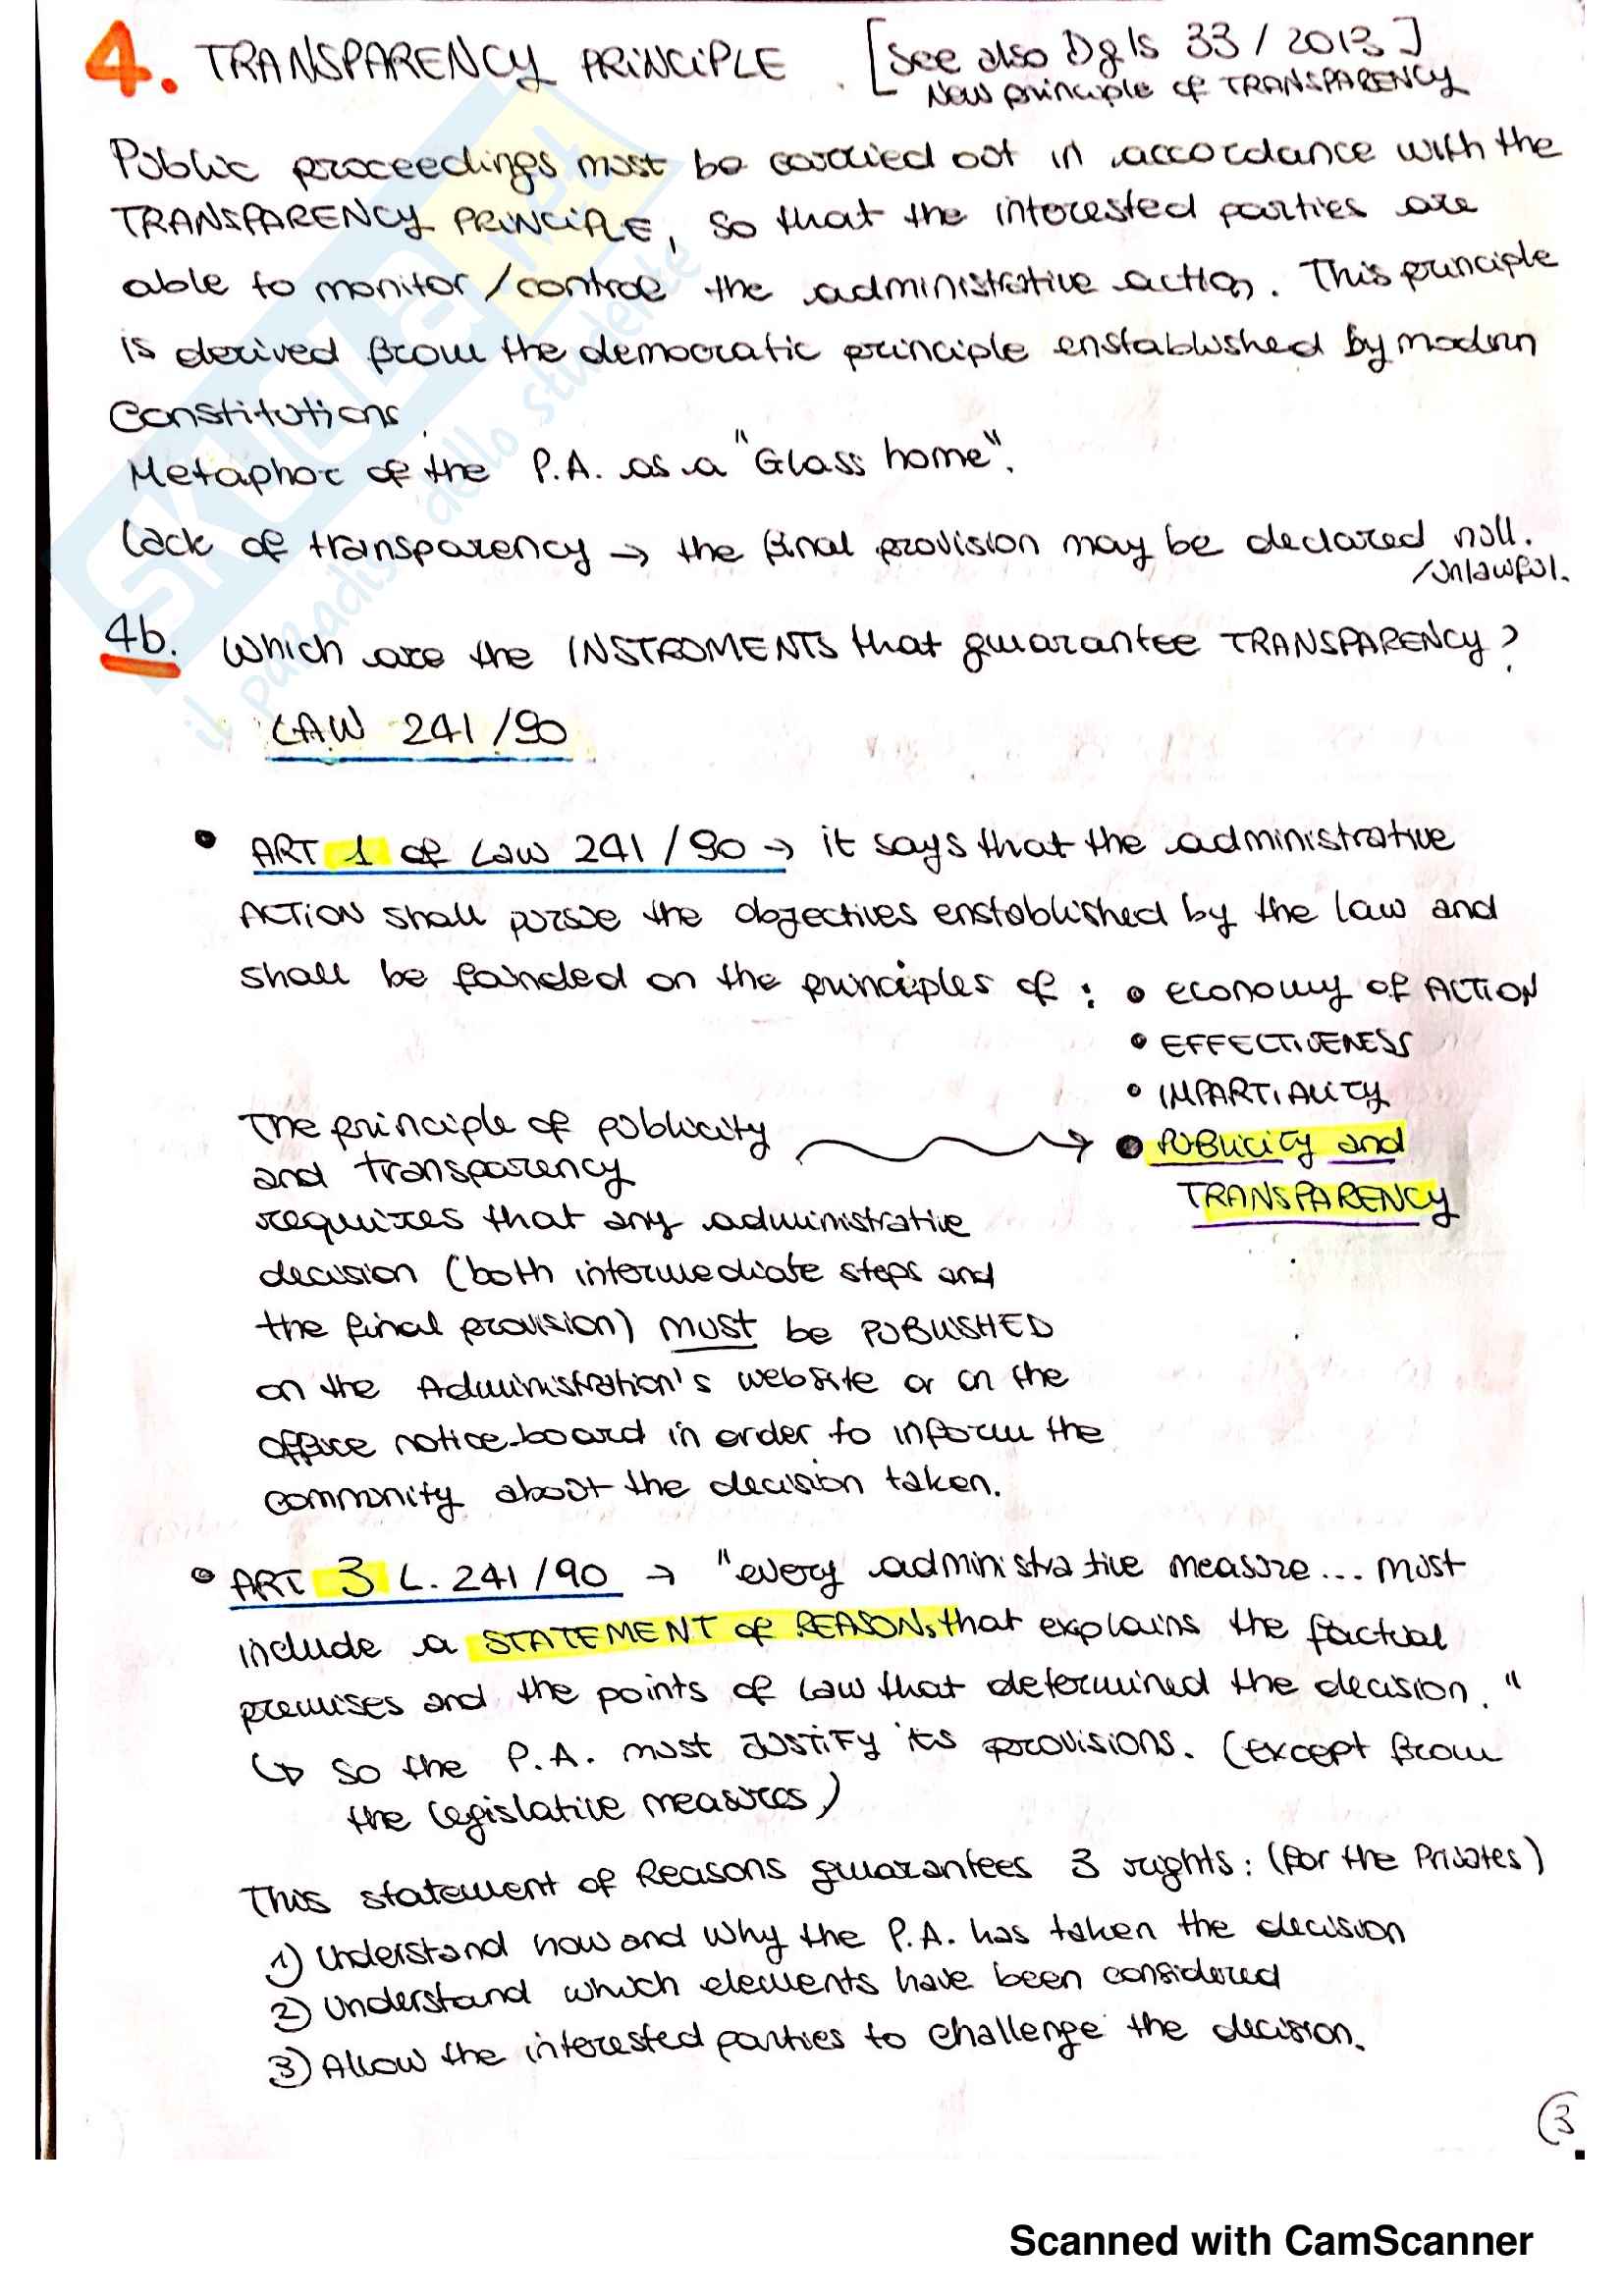 4. TRANSPARENCY PRINCIPLE. [See also Dgls 33/2013]
New principle of TRANSPARENCY
Public proceedings must be carried out in accordance with the
TRANSPARENCY PRINCIPLE, so that the interested parties are
able to monitor/control the administrative action. This principle
is derived from the democratic principle enstablished by modern
Constitutions.
Metaphor of the P.A. as a "Glass home".
Lack of transparency → the final provision may be declared null.
/unlawful.
4b. Which are the INSTRUMENTS that guarantee TRANSPARENCY?
LAW 241/90
• ART 1 of Law 241/90 → it says that the administrative
ACTION shall pursue the objectives enstablished by the law and
shall be founded on the principles of: • economy of ACTION
• EFFECTIVENESS
• IMPARTIALITY
The principle of publicity → • PUBLICITY and
and transparency TRANSPARENCY
requires that any administrative
decision (both intermediate steps and
the final provision) MUST be PUBLISHED
on the Administration's website or on the
office notice-board in order to inform the
community about the decision taken.
• ART 3 L. 241/90 → "every administrative measure... must
include a STATEMENT of REASONS that explains the factual
premises and the points of law that determined the decision."
↳ so the P.A. must JUSTIFY its provisions. (except from
the legislative measures)
This statement of Reasons guarantees 3 rights: (for the Privates)
1) Understand how and why the P.A. has taken the decision
2) Understand which elements have been considered
3) Allow the interested parties to challenge the decision.
(3
SKUOLA.net
il paradiso dello studente
Scanned with CamScanner